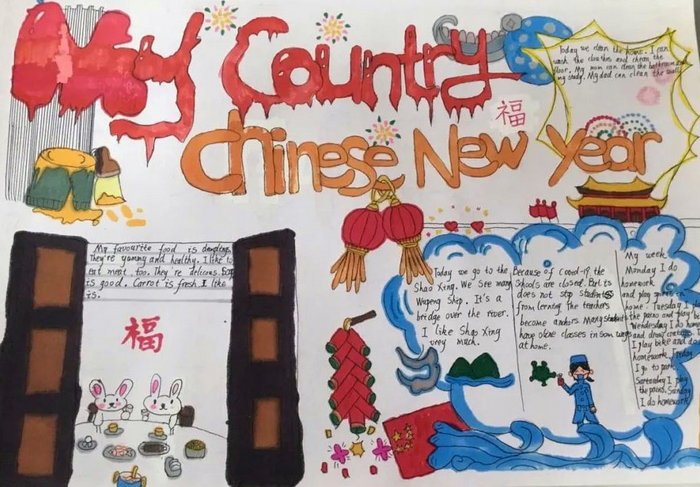 My Country
Chinese New Year
福
Today we clean the home. I can
wash the clothes and chean the
floor. My mum can clean the bathroom and
my study. My dad can clean the
My favourite food is dumplings.
They're yummy and healthy. I like to
eat meat, too. They're delicious.
is good. Carrot is fresh. I like
is.
福
Today we go to the
Shao Xing. We see many
Wupeng Ship. It's a
bridge over the river.
I like Shao Xing
very much.
Because of covid-19 the
schools are closed. But it
does not stop students
from lerning the teachers
become anchors. Many students
have oline classes in som ways
at home.
My week
Monday I do
homework
and play sports in
home. Tuesday I
the piano and play
Wendesday I do home
and draw
I play bike and do
homework.
I go to park
Sarterday I play
the piano. Sunday
I do homework